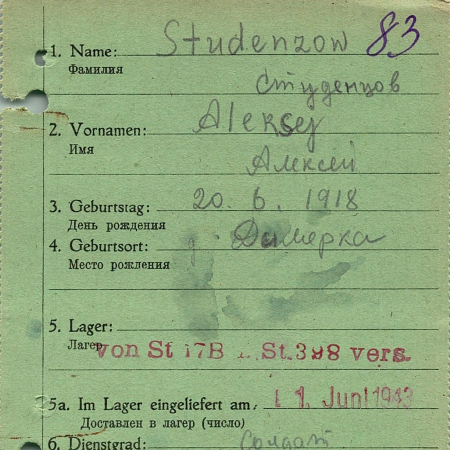 1. Name: Studenzow 83
Фамилия Студенцов
2. Vornamen: Aleksej
Имя Алексей
3. Geburtstag: 20. 6. 1918
День рождения
4. Geburtsort: д. Димерка
Место рождения
5. Lager:
Лагер von St 17B St. 398 vers.
5a. Im Lager eingeliefert am: 1. Juni 1943
Доставлен в лагер (число)
6. Dienstgrad: Солдат